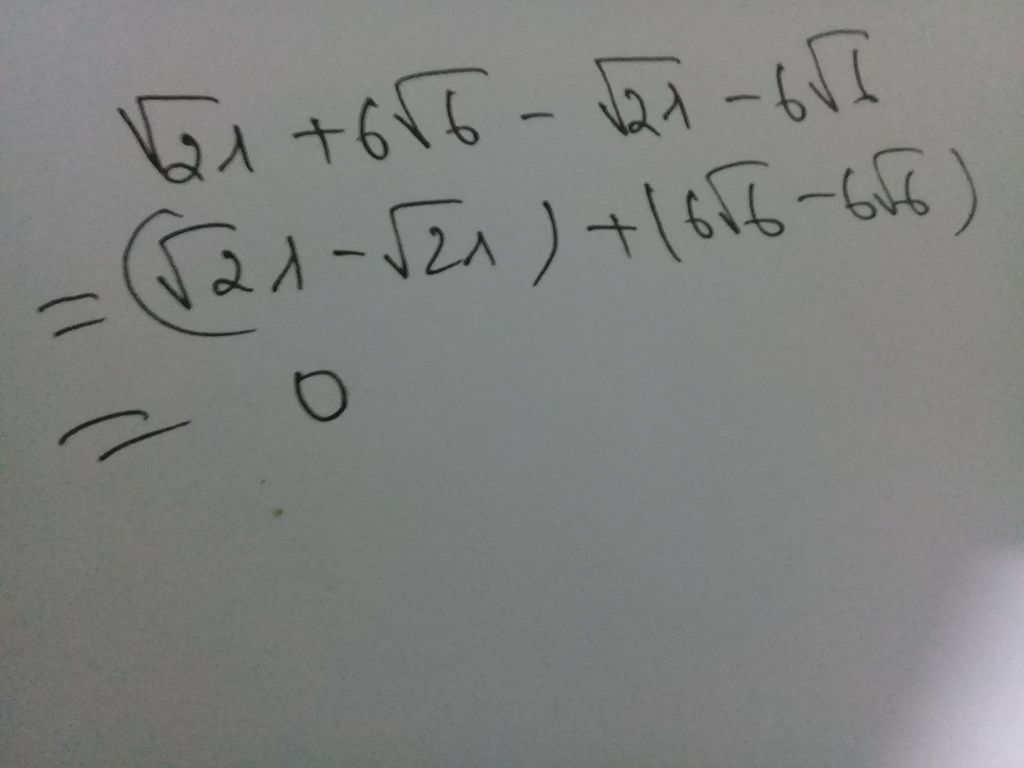 √21 + 6√6 - √21 - 6√6
= (√21 - √21) + (6√6 - 6√6)
= 0